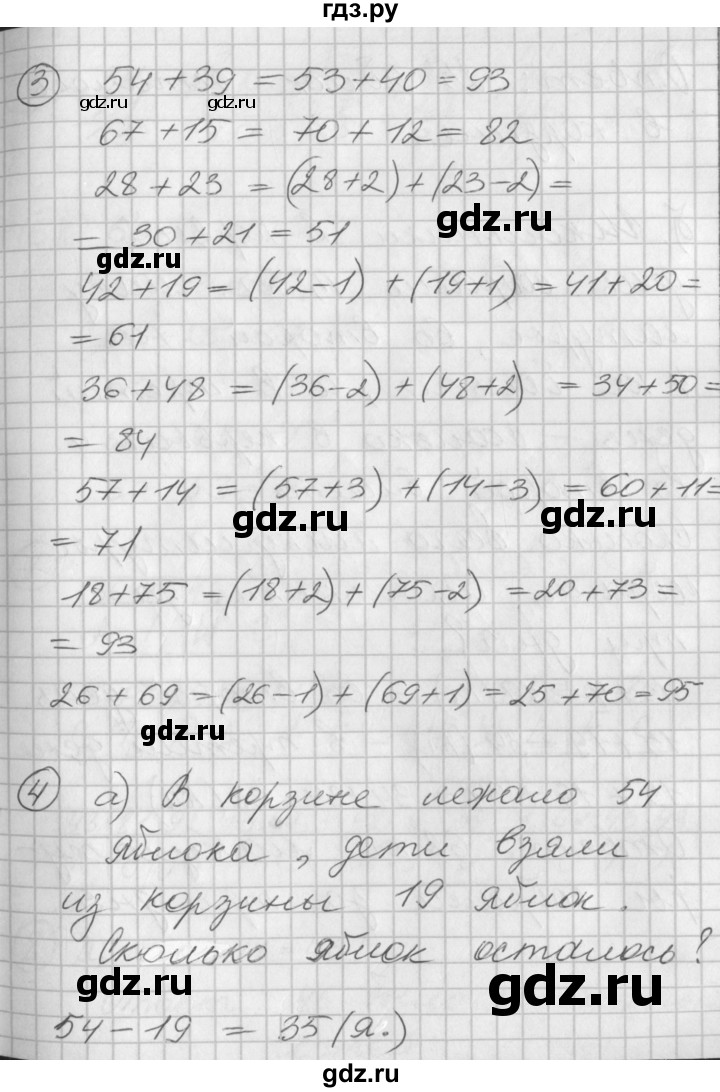 гдз.ру
③ 54 + 39 = 53 + 40 = 93
gdz.ru gdz.ru
67 + 15 = 70 + 12 = 82
28 + 23 = (28+2) + (23-2) =
gdz.ru
= 30 + 21 = 51
gdz.ru
42 + 19 = (42-1) + (19+1) = 41 + 20 =
= 61
36 + 48 = (36-2) + (48+2) = 34 + 50 =
= 84
57 + 14 = (57+3) + (14-3) = 60 + 11 =
gdz.ru gdz.ru
= 71
18 + 75 = (18+2) + (75-2) = 20 + 73 =
= 93
26 + 69 = (26-1) + (69+1) = 25 + 70 = 95
gdz.ru
④ а) В корзине лежало 54
яблока, дети взяли
из корзины 19 яблок.
Сколько яблок осталось?
gdz.ru gdz.ru
54 - 19 = 35 (я.)
gdz.ru